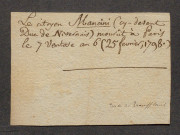 Le citoyen Mancini (cy-devant
Duc de Nivernois) mourut à Paris
le 7 Ventose an 6 (25 février 1798.)